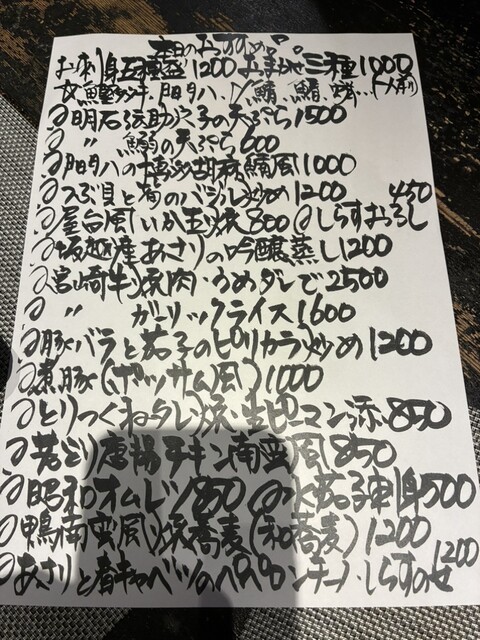 本日のおすすめ。
お刺身五種盛1200 おまかせ三種1000
、鰆、
②明石浜助穴子の天ぷら1500
②〃 の天ぷら600
②の博多胡麻鯛風1000
②つぶ貝と筍のバジル炒め1200 450
②屋台風いか玉焼800 ②しらすおろし
②坂越産あさりの吟醸蒸し1200
②宮崎牛焼肉・うめダレで2500
②〃 ガーリックライス1600
②豚バラと茄子のピリカラ炒め1200
②煮豚(ポッサム風)1000
②とりつくねタレ焼・生ピーマン添850
②若どり唐揚チキン南蛮風850
②昭和オムレツ850 ②水茄子刺身500
②鴨南蛮風焼蕎麦(和蕎麦)1200
②あさりと春キャベツのペペロンチーノ・しらすのせ1200